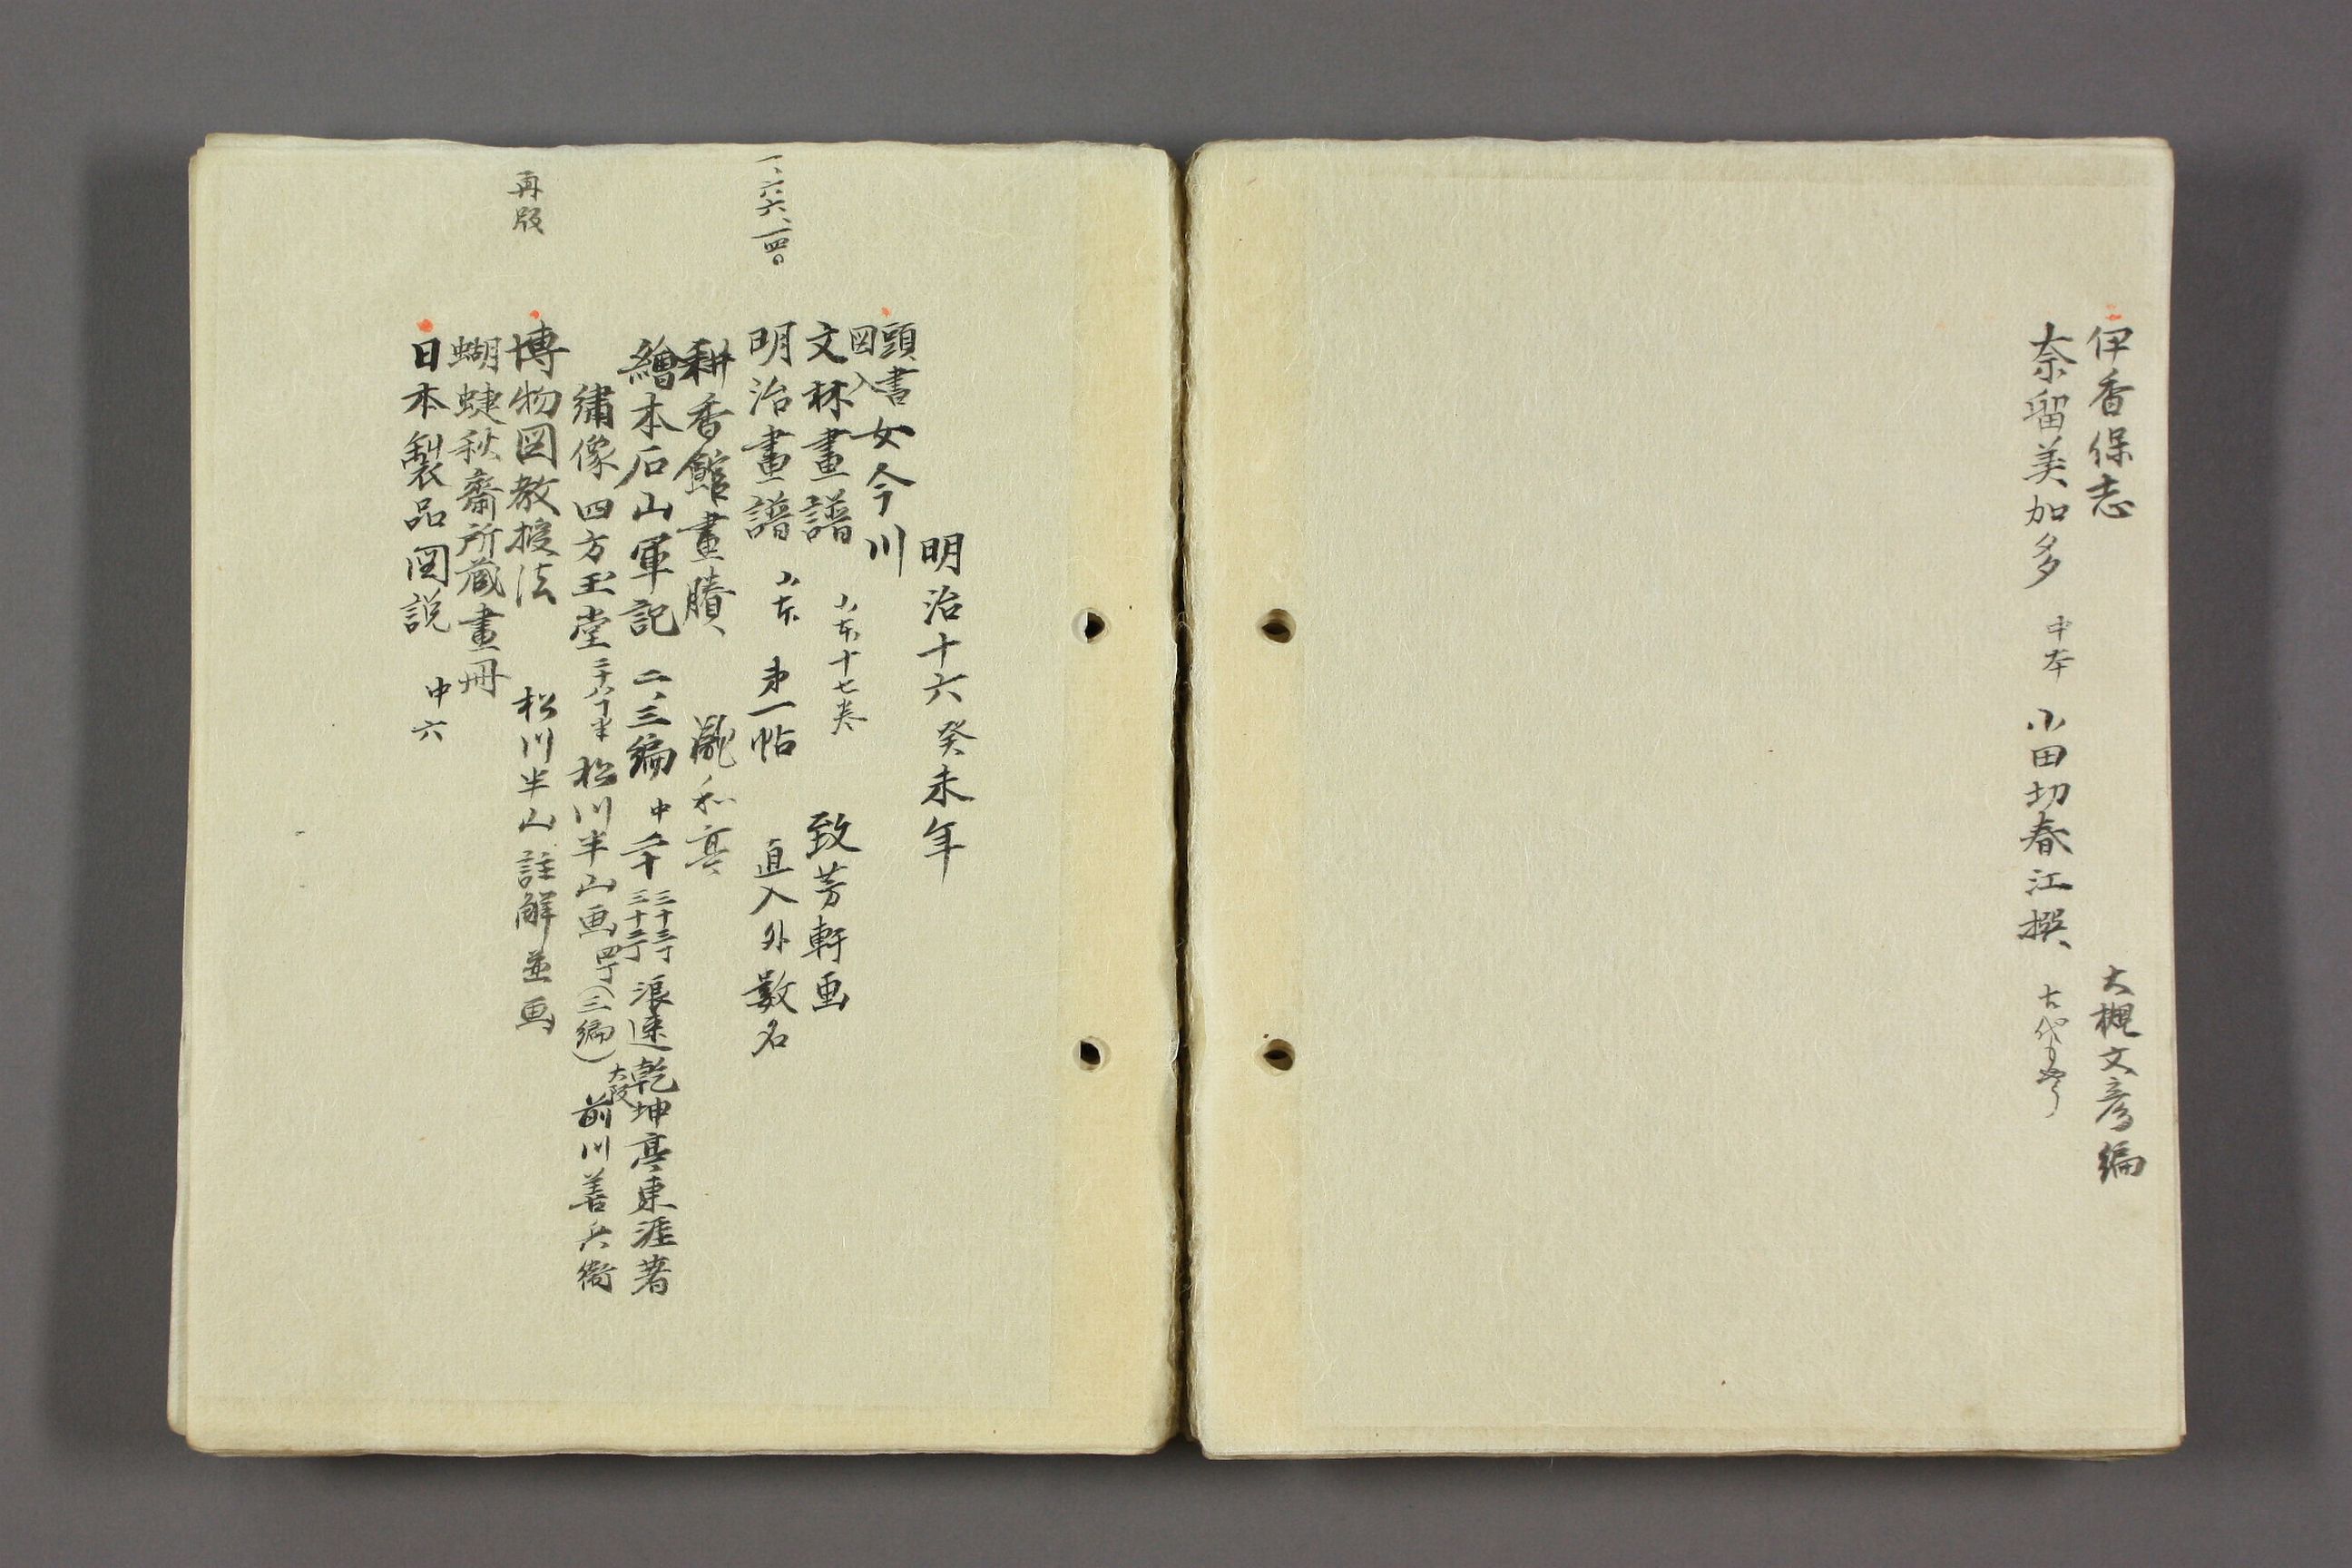 伊香保志 大槻文彦編
奈留美加多 中本 小田切春江撰
明治十六癸未年
頭書図入女今川
文林畫譜 小本十七巻 致芳軒画
明治畫譜 小本 第一帖 直入外数名
一、六六、一四〇
耕香館畫賸 瀧和亭
繪本石山軍記 二、三編 中 三十三丁 浪速乾坤亭東涯著
繡像四方玉堂 松川半山画 (三編) 大阪 前川善兵衛
再版
博物図教授法 松川半山註解並画
蝴蜨秋齋所蔵畫冊
日本製品図説 中六